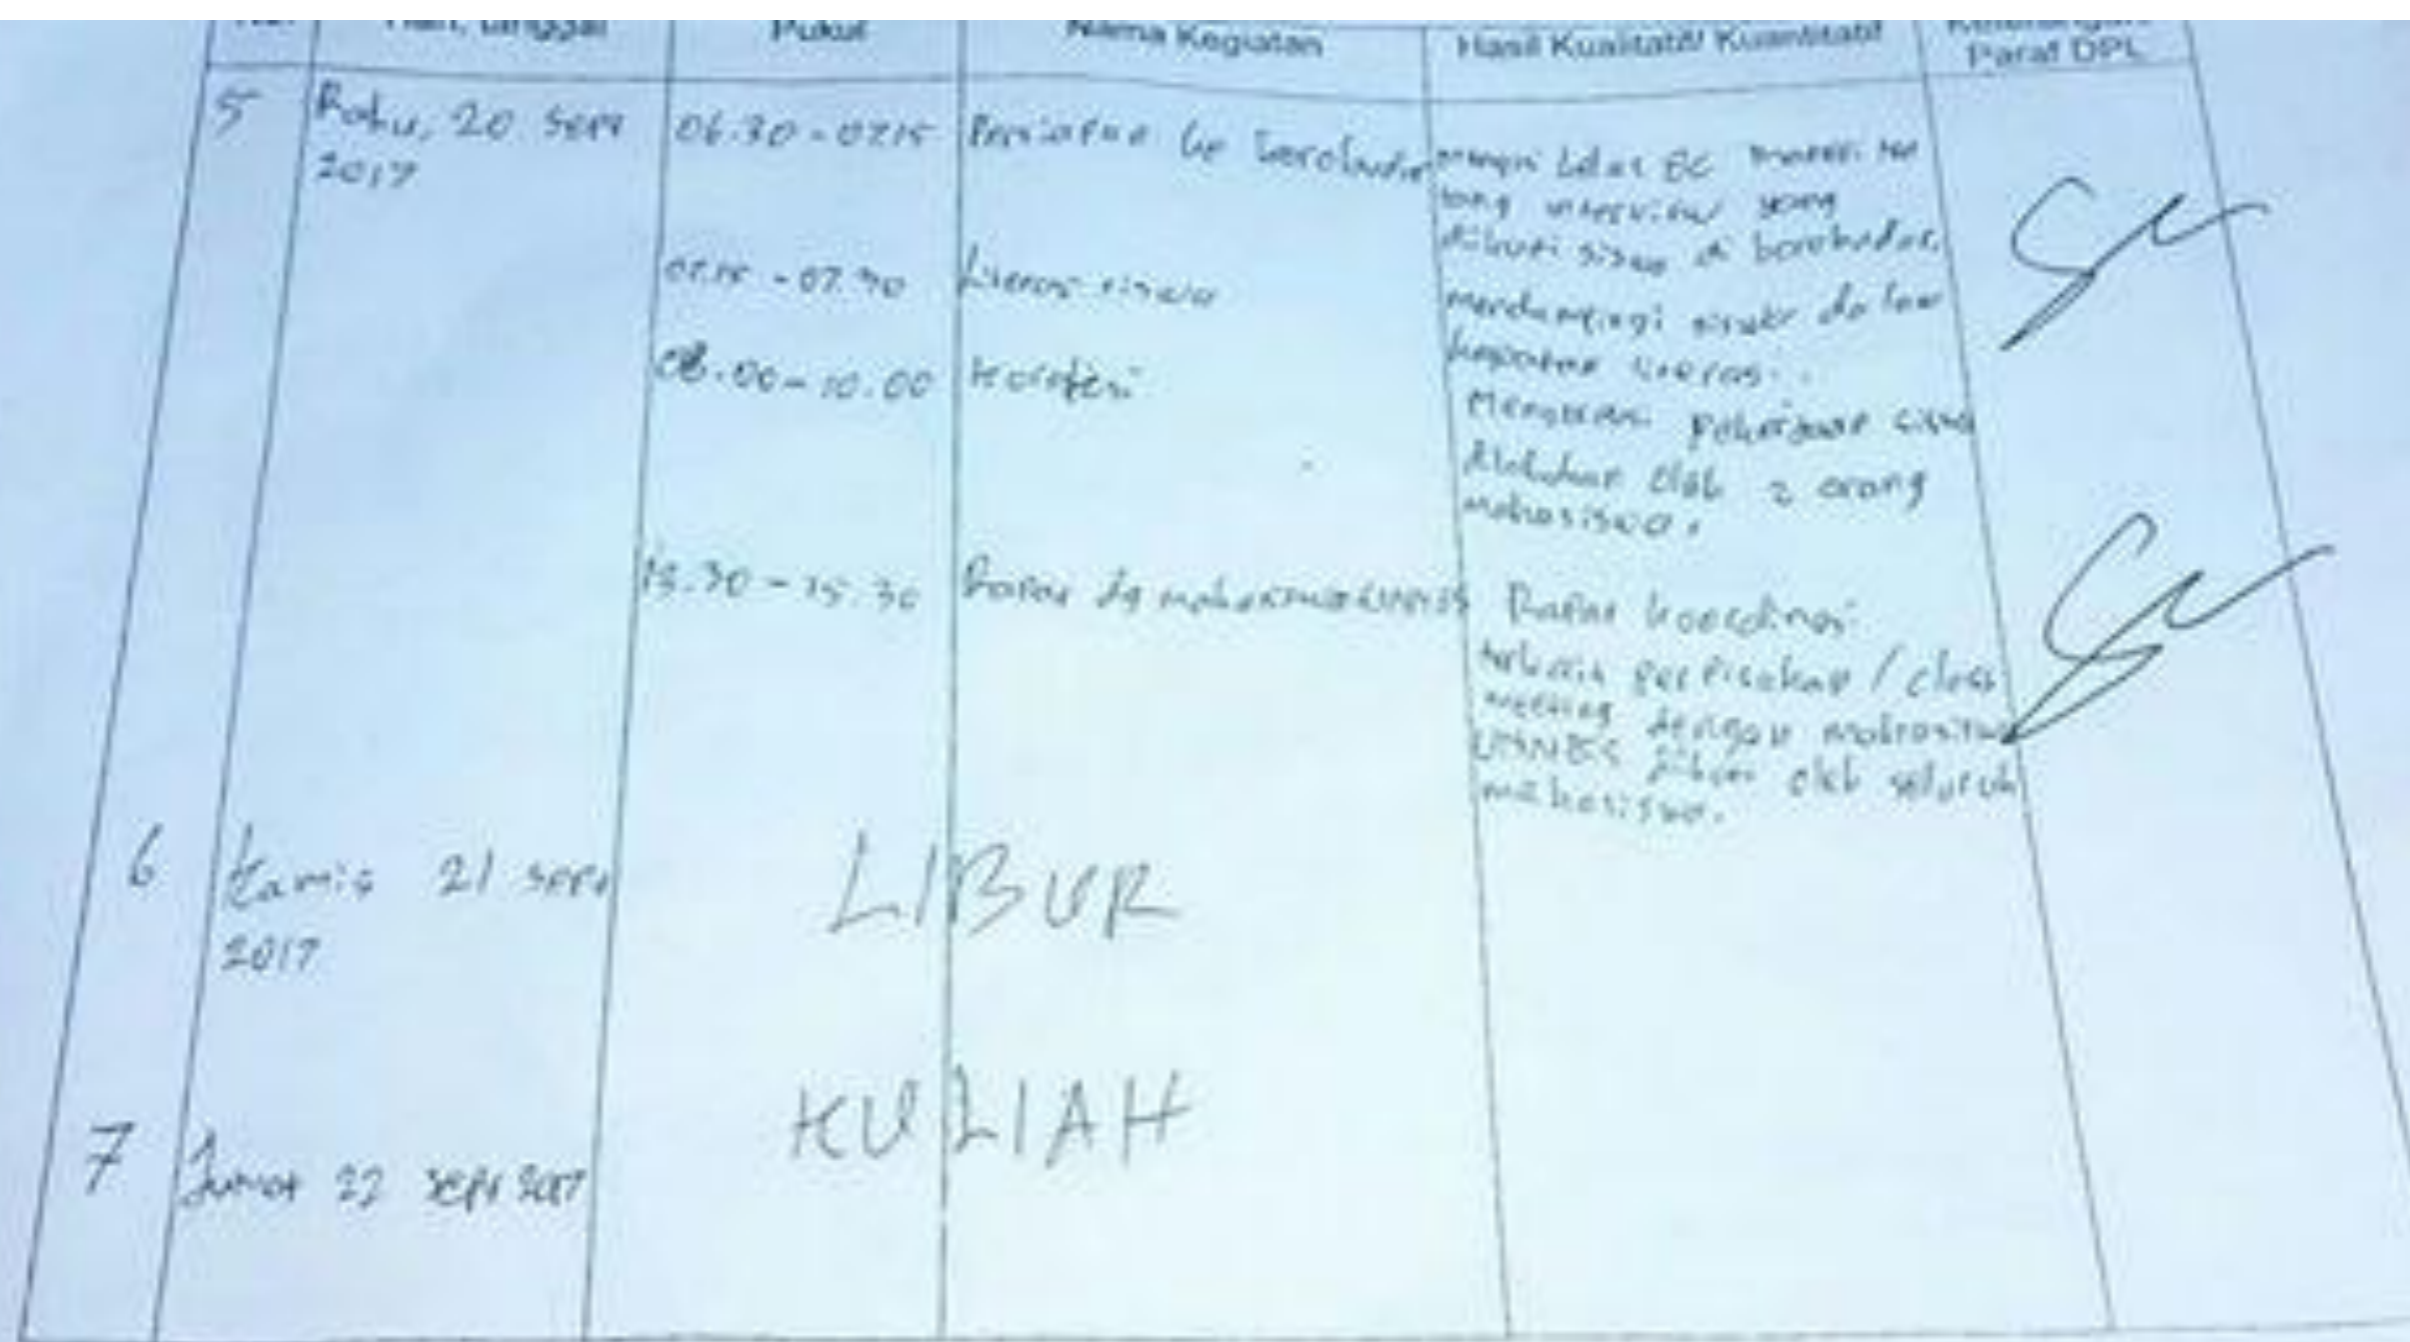 Hari, tanggal
Pukul
Nama Kegiatan
Hasil Kualitatif/ Kuantitatif
Keterangan/
Paraf DPL
5
Rabu, 20 Sept
2017
06.30 - 07.15
Persiapan ke borobudur
kelas 8C
interview yang
diikuti siswa di borobudur.
07.15 - 07.30
Literasi siswa
mendampingi siswa dalam
kegiatan literasi.
08.00 - 10.00
Koreksi
Mengoreksi pekerjaan siswa
dilakukan oleh 2 orang
mahasiswa.
15.30
Rapat dg mahasiswa UNNES
Rapat koordinasi
terkait perpisahan / class
meeting dengan mahasiswa
UNNES oleh seluruh
mahasiswa.
6
Kamis 21 sept
2017
LIBUR
7
Jumat 22 sept 2017
KULIAH